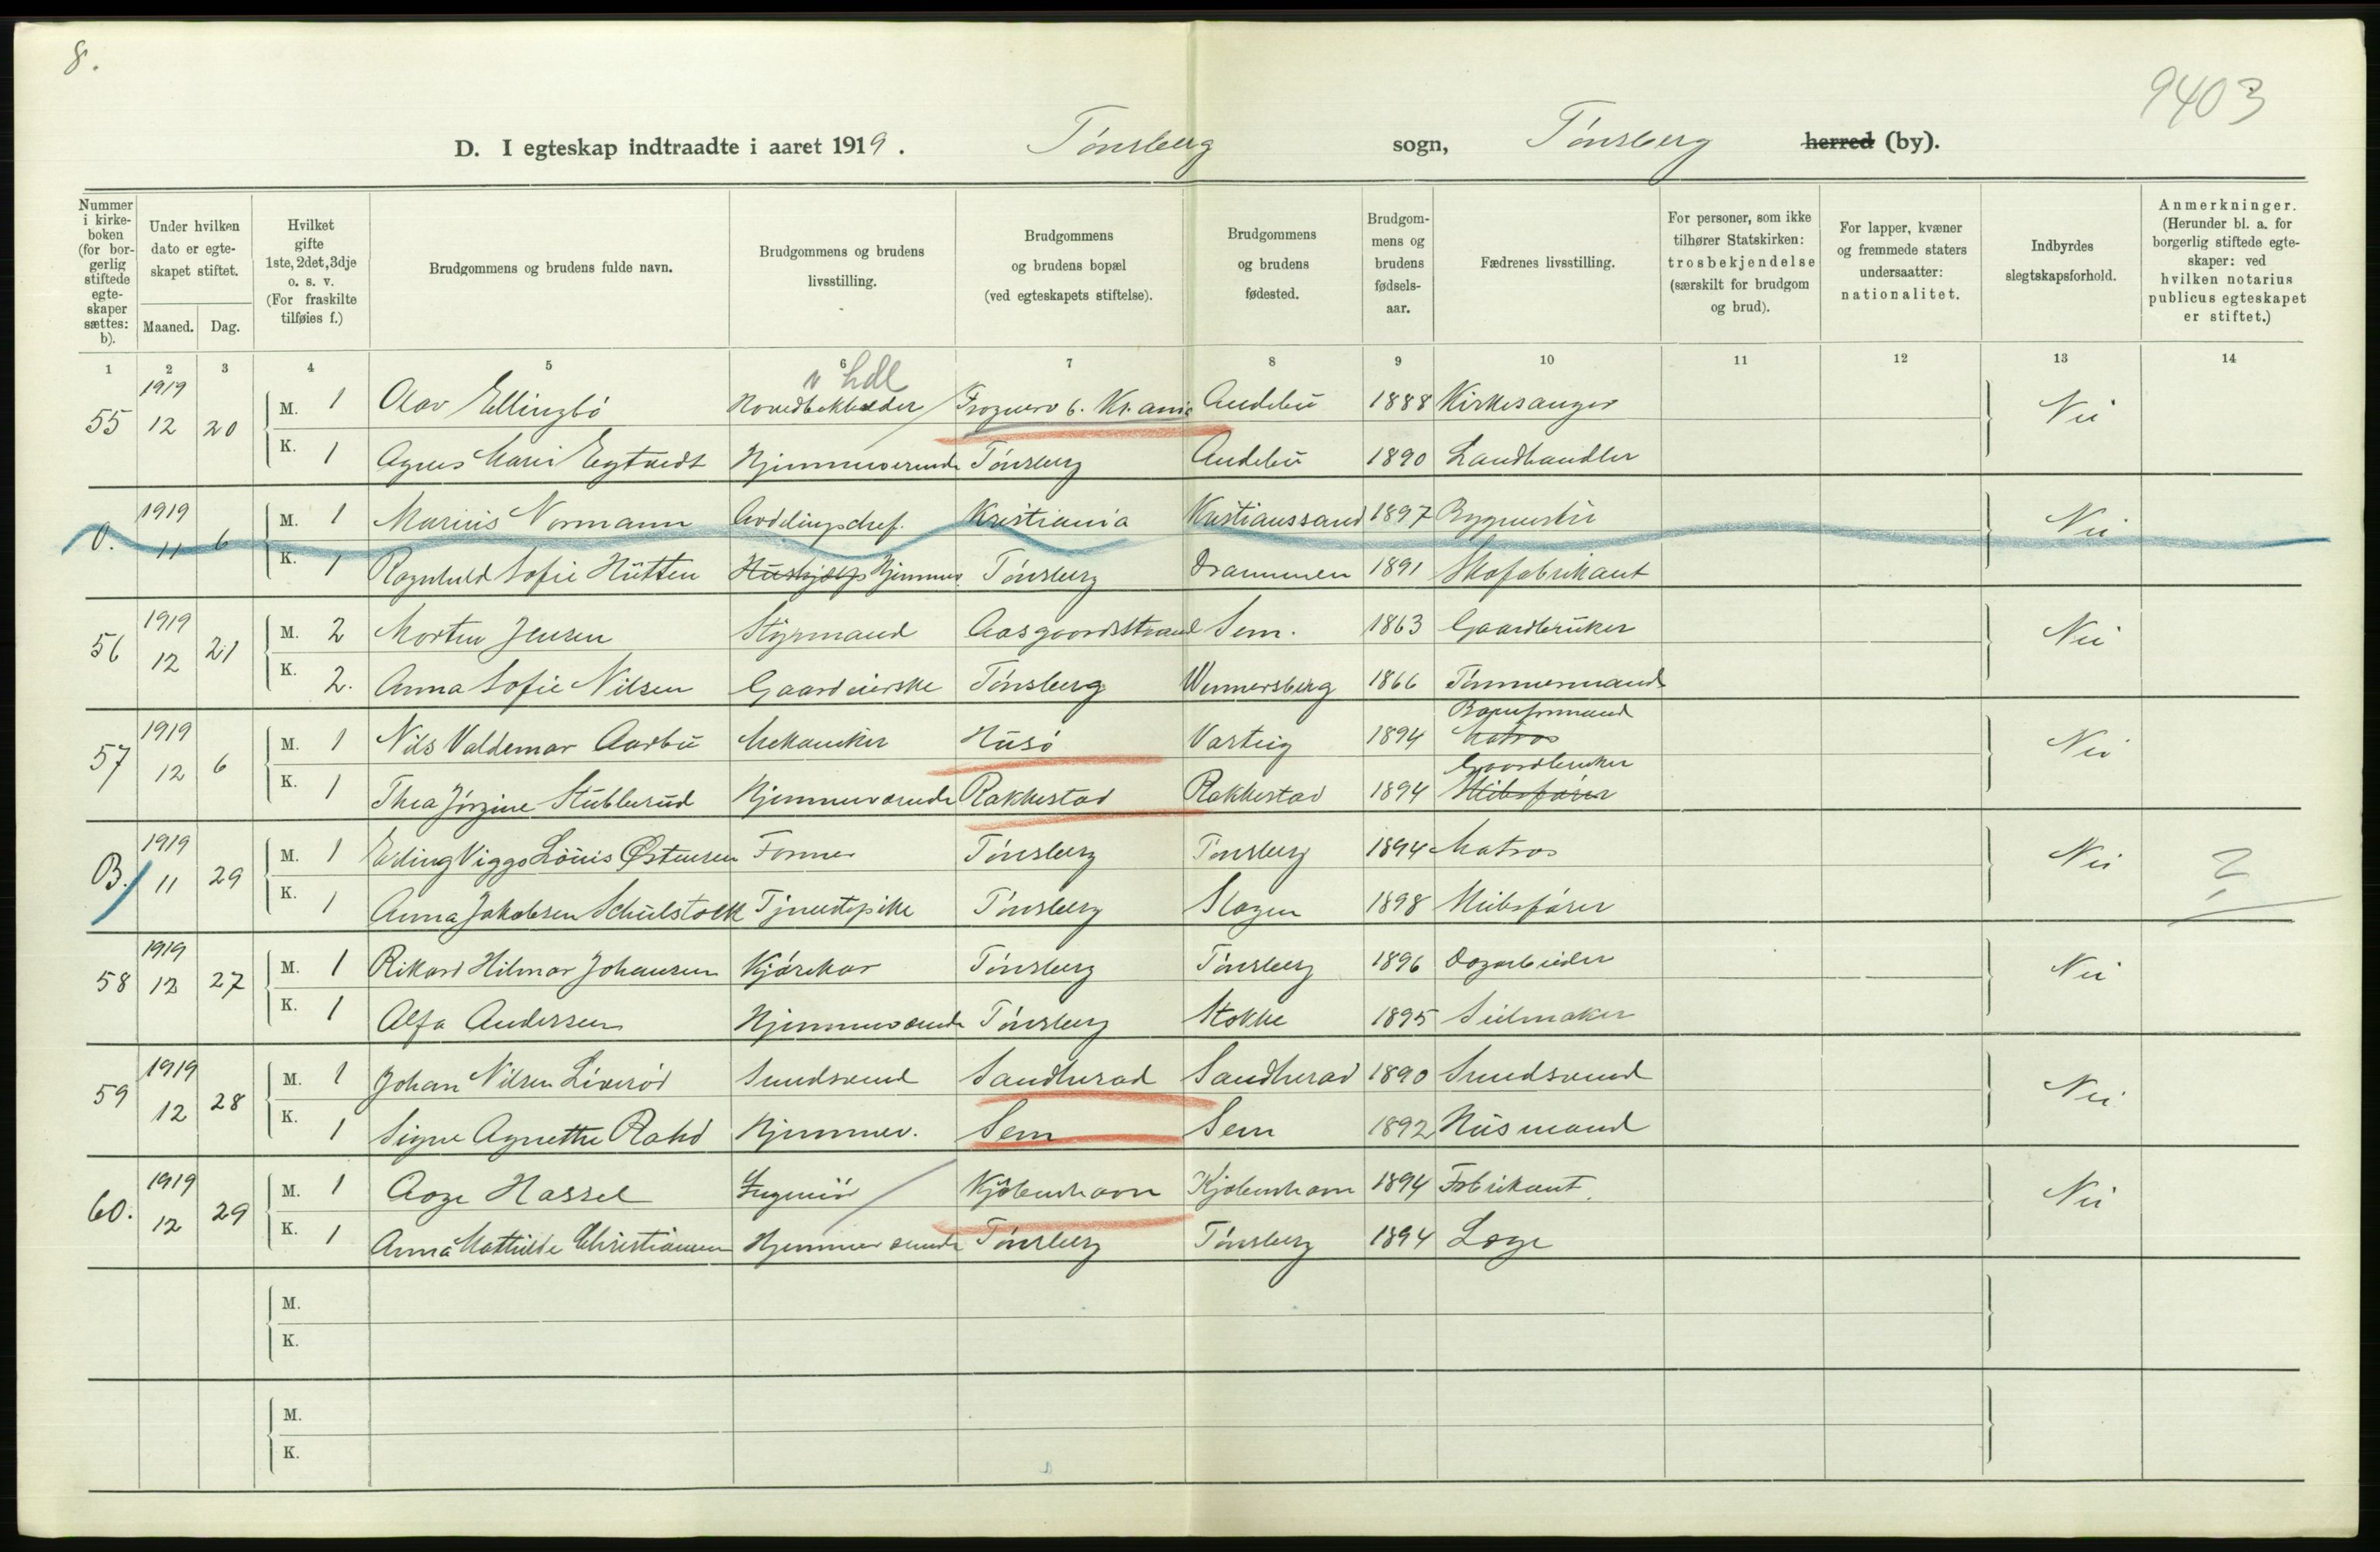 8.
9403
D. I egteskap indtraadte i aaret 1919. Tønsberg sogn, Tønsberg herred (by).
Nummer i kirkeboken (for borgerlig stiftede egteskaper sættes: b).
Under hvilken dato er egteskapet stiftet.
Maaned. Dag.
Hvilket gifte 1ste, 2det, 3dje o. s. v. (For fraskilte tilføies f.)
Brudgommens og brudens fulde navn.
Brudgommens og brudens livsstilling.
Brudgommens og brudens bopæl (ved egteskapets stiftelse).
Brudgommens og brudens fødested.
Brudgommens og brudens fødselsaar.
Fædrenes livsstilling.
For personer, som ikke tilhører Statskirken: trosbekjendelse (særskilt for brudgom og brud).
For lapper, kvæner og fremmede staters undersaatter: nationalitet.
Indbyrdes slegtskapsforhold.
Anmerkninger. (Herunder bl. a. for borgerlig stiftede egteskaper: ved hvilken notarius publicus egteskapet er stiftet.)
1 2 3 4 5 6 7 8 9 10 11 12 13 14
hdl
55 1919 12 20 M. 1 Olav Ellingsbø Hovedbokholder Frognerv 6. Kr.ania Andebu 1888 Kirkesanger Nei
K. 1 Agnes Marie Egtvedt Hjemmeværende Tønsberg Andebu 1890 Landhandler
0. 1919 11 6 M. 1 Marius Normann Avdelingschef. Kristiania Kristianssand 1897 Bygmester Nei
K. 1 Ragnhild Sofie Hütten Hushjelp Hjemmev. Tønsberg Drammen 1891 Skofabrikant
56 1919 12 21 M. 2 Morten Jensen Styrmand Aasgaardstrand Sem. 1863 Gaardbruker Nei
K. 2. Anna Sofie Nilsen Gaardeierske Tønsberg Wennersberg 1866 Tømmermand
Baneformand
57 1919 12 6 M. 1 Nils Valdemar Aarbu Mekaniker Husø Varteig 1894 Matros Nei
Gaardbruker
K. 1 Thea Jørgine Stubberud Hjemmeværende Rakkestad Rakkestad 1894 Skibsfører
B. 1919 11 29 M. 1 Erling Viggo Louis Østensen Former Tønsberg Tønsberg 1894 Matros Nei
K. 1 Anna Jakobsen Schulstock Tjenestepike Tønsberg Slagen 1898 Skibsfører
58 1919 12 27 M. 1 Rikard Hilmar Johansen Kjørekar Tønsberg Tønsberg 1896 Dagarbeider Nei
K. 1 Alfa Andersen Hjemmeværende Tønsberg Stokke 1895 Seilmaker
59 1919 12 28 M. 1 Johan Nilsen Liverød Smedsvend Sandherad Sandherad 1890 Smedsvend Nei
K. 1 Signe Agnethe Rakd Hjemmev. Sem Sem 1892 Husmand
60. 1919 12 29 M. 1 Aage Hassel Ingeniør Kjøbenhavn Kjøbenhavn 1894 Fabrikant. Nei
K. 1 Anna Mathilde Christiansen Hjemmeværende Tønsberg Tønsberg 1894 Læge
M.
K.
M.
K.